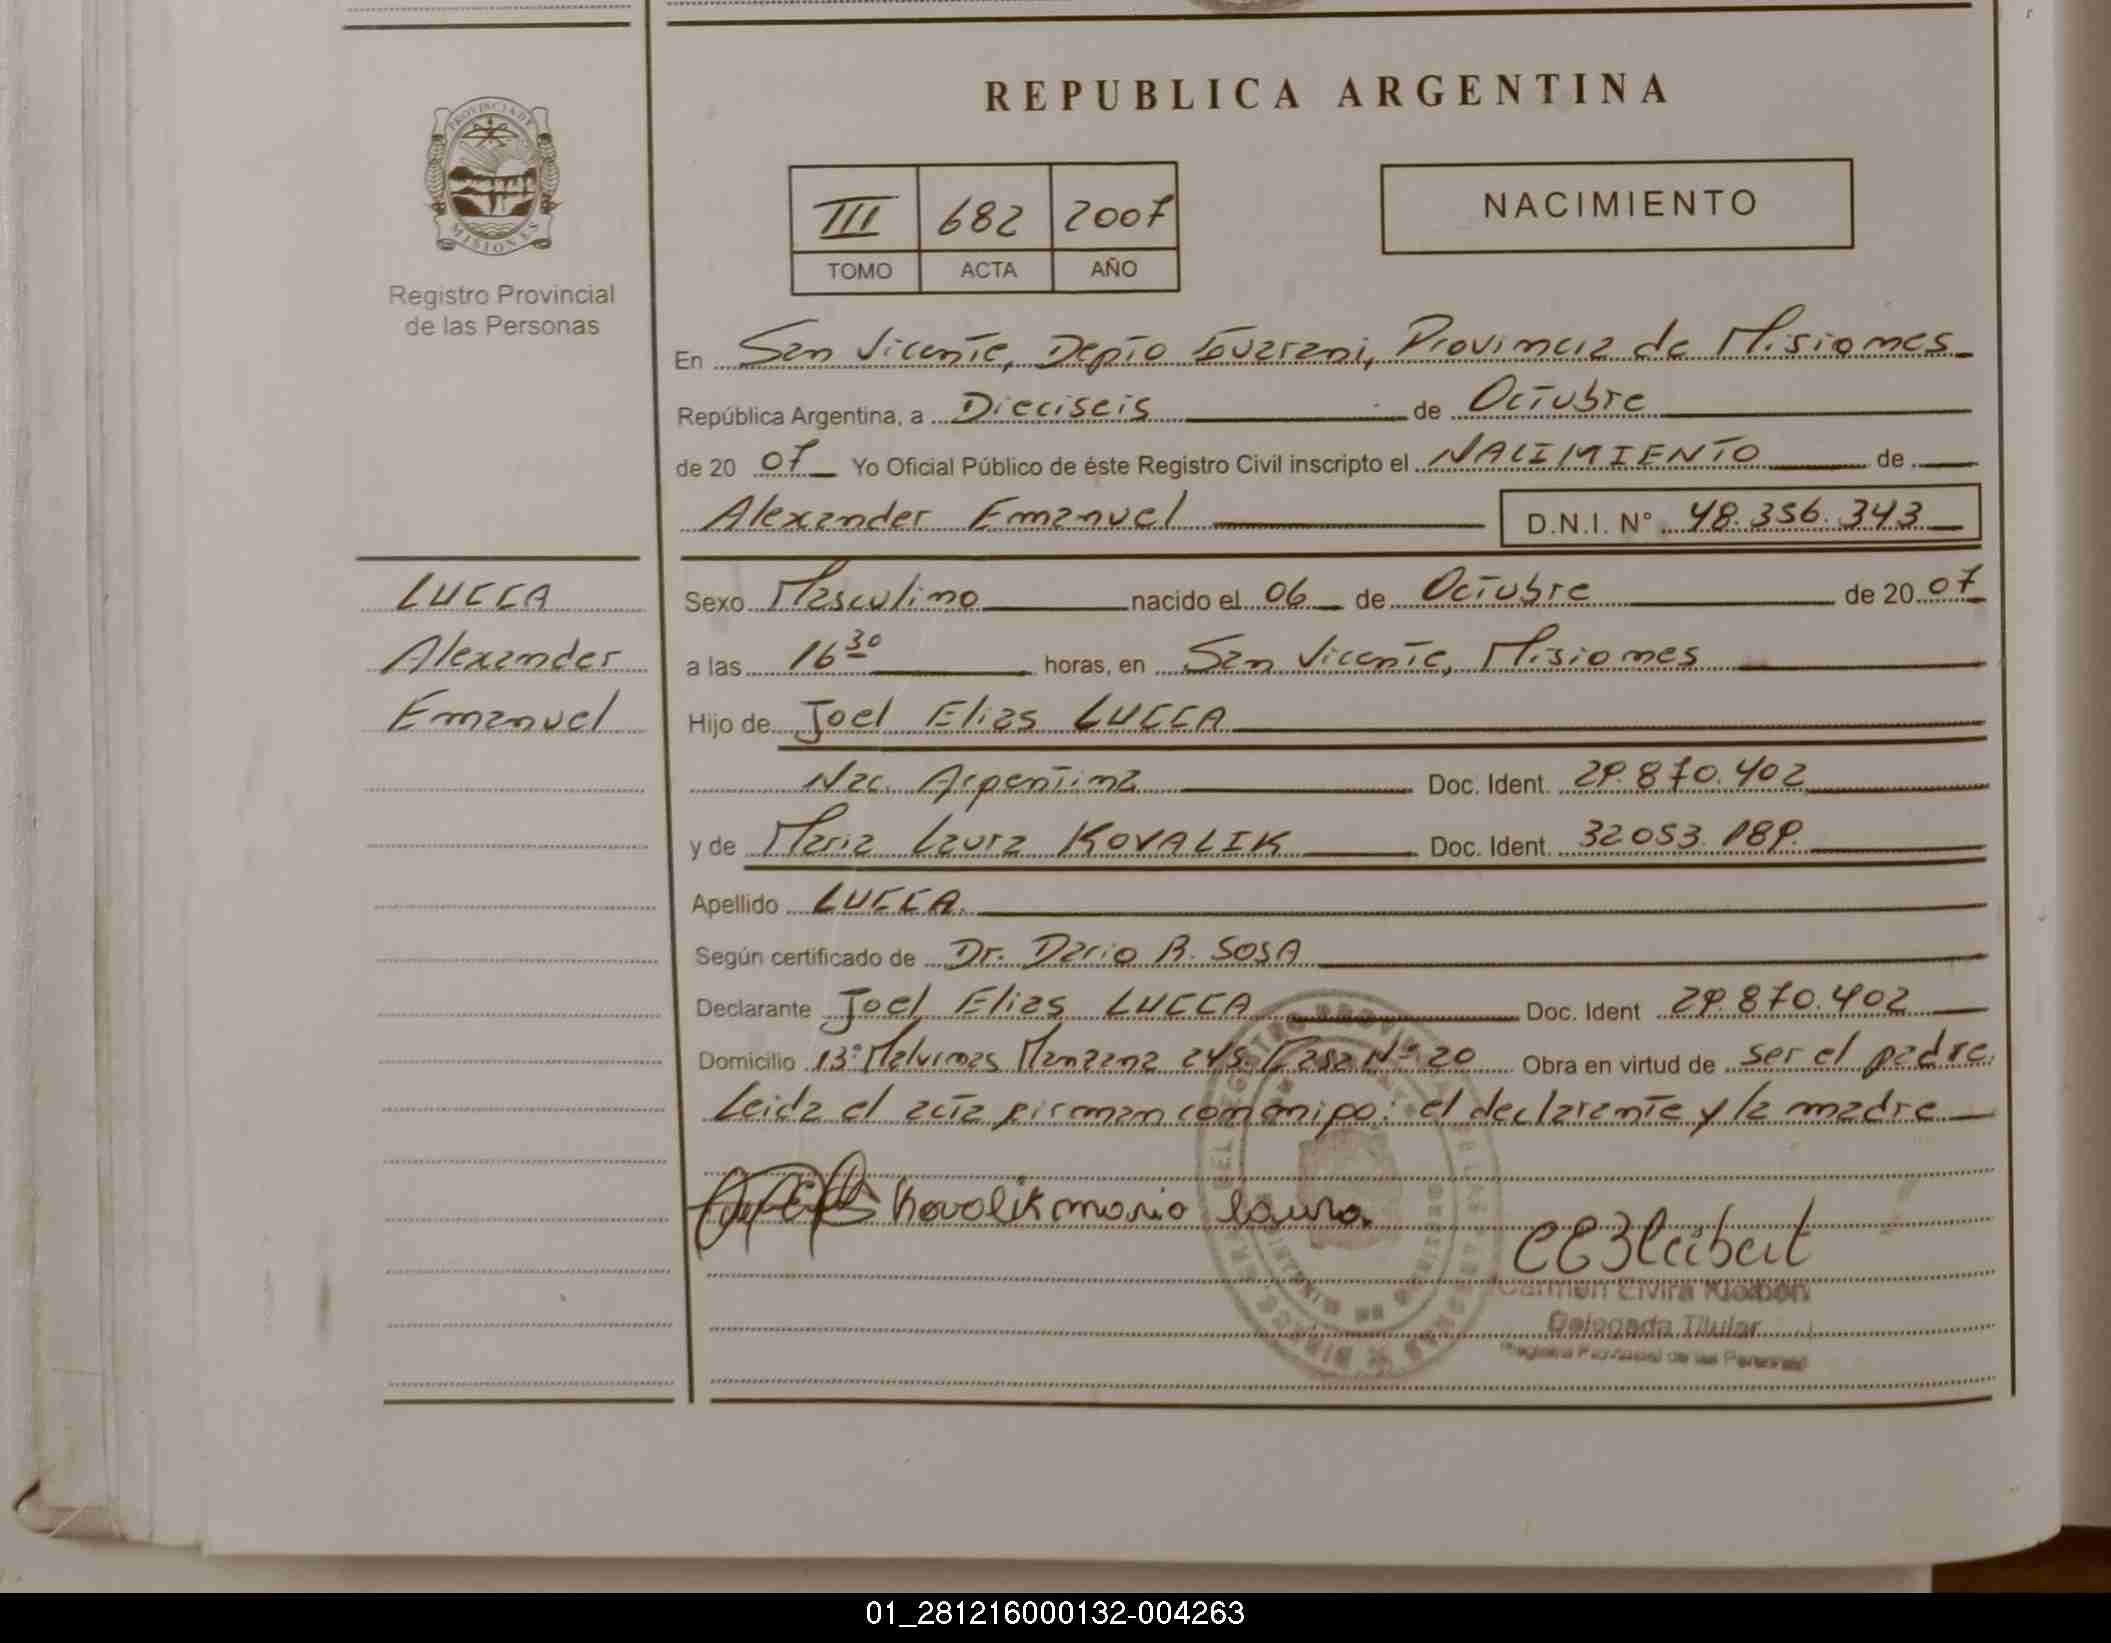 REPUBLICA ARGENTINA
PROVINCIA DE
MISIONES
Registro Provincial
de las Personas
III 682 2007
TOMO ACTA AÑO
NACIMIENTO
En San Vicente, Depto Guarani, Provincia de Misiones
República Argentina, a Dieciseis de Octubre
de 20 07 Yo Oficial Público de éste Registro Civil inscripto el NACIMIENTO de
Alexander Emanuel D.N.I. N° 48.356.343
LUCCA
Alexander
Emanuel
Sexo Masculino nacido el 06 de Octubre de 20 07
a las 16 30 horas, en San Vicente, Misiones
Hijo de Joel Elias LUCCA
Nac. Argentina Doc. Ident. 29.870.402
y de Maria Laura KOVALIK Doc. Ident. 32053.189.
Apellido LUCCA.
Según certificado de Dr. Dario R. SOSA
Declarante Joel Elias LUCCA Doc. Ident 29.870.402
Domicilio B° Malvinas Manzana 245. Casa N° 20 Obra en virtud de ser el padre.
Leida el acta firman conmigo: el declarante y la madre
Kovalik maria laura.
Carmen Elvira
Delegada Titular
Registro Provincial de las Personas
01_281216000132-004263